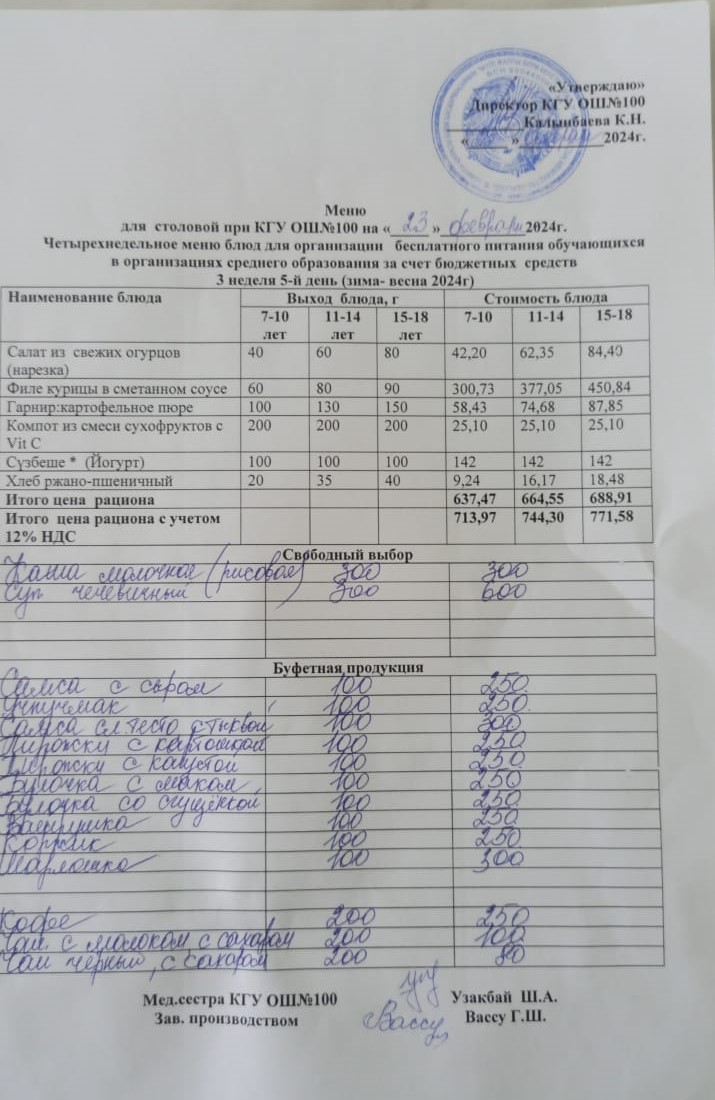 «Утверждаю»
Директор КГУ ОШ№100
Калынбаева К.Н.
« » 2024г.
Меню
для столовой при КГУ ОШ№100 на « 23 » февраля 2024г.
Четырехнедельное меню блюд для организации бесплатного питания обучающихся
в организациях среднего образования за счет бюджетных средств
3 неделя 5-й день (зима- весна 2024г)
Наименование блюда Выход блюда, г Стоимость блюда
7-10 лет 11-14 лет 15-18 лет 7-10 11-14 15-18
Салат из свежих огурцов (нарезка) 40 60 80 42,20 62,35 84,40
Филе курицы в сметанном соусе 60 80 90 300,73 377,05 450,84
Гарнир:картофельное пюре 100 130 150 58,43 74,68 87,85
Компот из смеси сухофруктов с Vit C 200 200 200 25,10 25,10 25,10
Сузбеше * (Йогурт) 100 100 100 142 142 142
Хлеб ржано-пшеничный 20 35 40 9,24 16,17 18,48
Итого цена рациона 637,47 664,55 688,91
Итого цена рациона с учетом 12% НДС 713,97 744,30 771,58
Свободный выбор
Каша молочная (рисовая) 300 300
Суп чечевичный 300 600
Буфетная продукция
Самса с сыром 100 250
Учпучмак 100 250
Самса сл.тесто с тыквой 100 300
Пирожки с картошкой 100 250
Пирожки с капустой 100 250
Булочка с маком 100 250
Булочка со сгущёнкой 100 250
Ватрушка 100 250
Коржик 100 250
100 300
Кофе 200 250
Чай с молоком, с сахаром 200 100
Чай чёрный, с сахаром 200 80
Мед.сестра КГУ ОШ№100 Узакбай Ш.А.
Зав. производством Вассу Вассу Г.Ш.